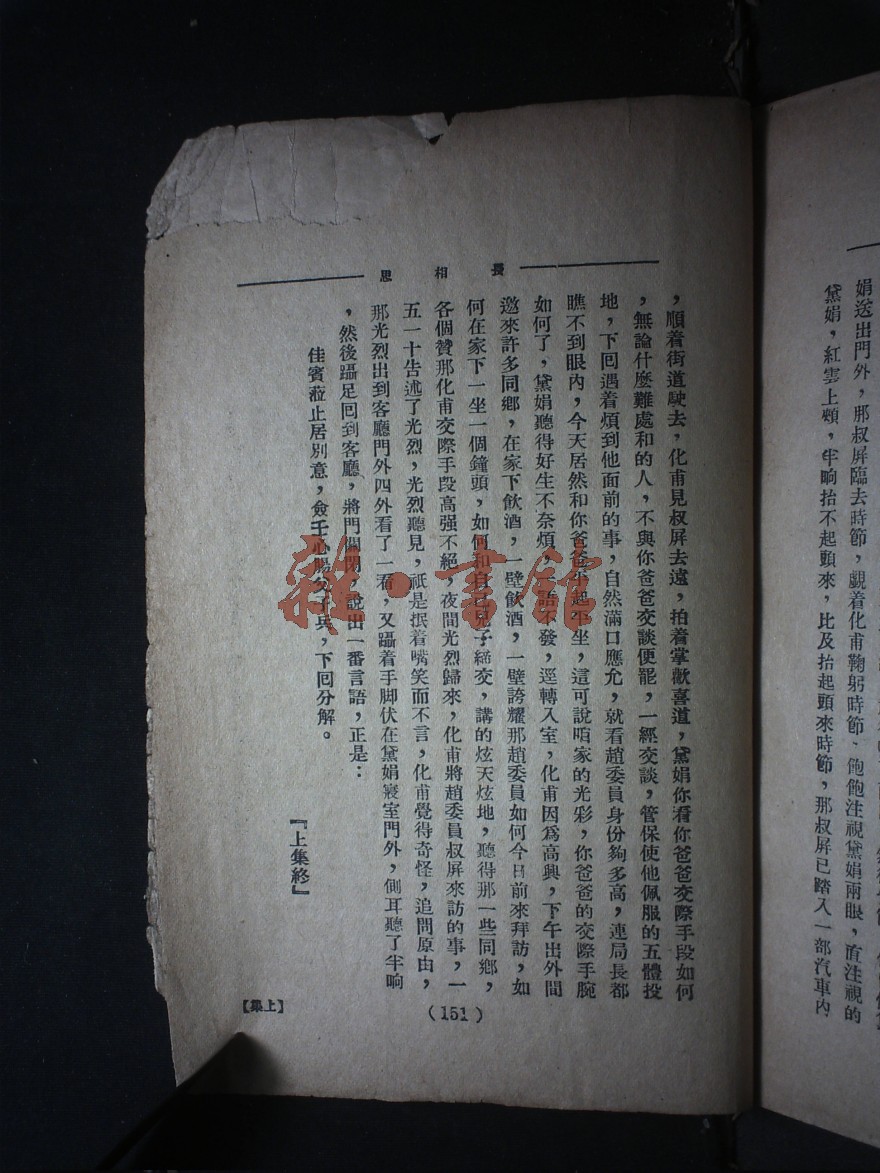 娟送出門外，那叔屏臨去時節，覷着化甫鞠躬時節、飽飽注視黛娟兩眼，直注視的
黛娟，紅雲上頰，半晌抬不起頭來，比及抬起頭來時節，那叔屏已踏入一部汽車內
長相思
，順着街道駛去，化甫見叔屏去遠，拍着掌歡喜道，黛娟你看你爸爸交際手段如何
，無論什麼難處和的人，不與你爸爸交談便罷，一經交談，管保使他佩服的五體投
地，下回遇着煩到他面前的事，自然滿口應允，就看趙委員身份夠多高，連局長都
瞧不到眼內，今天居然和你爸爸平起平坐，這可說咱家的光彩，你爸爸的交際手腕
如何了，黛娟聽得好生不奈煩，一語不發，逕轉入室，化甫因爲高興，下午出外間
邀來許多同鄉，在家下飲酒，一壁飲酒，一壁誇耀那趙委員如何今日前來拜訪，如
何在家下一坐一個鐘頭，如何和自己兒子締交，講的炫天炫地，聽得那一些同鄉，
各個贊那化甫交際手段高强不絕，夜間光烈歸來，化甫將趙委員叔屏來訪的事，一
五一十告述了光烈，光烈聽見，祇是抿着嘴笑而不言，化甫覺得奇怪，追問原由，
那光烈出到客廳門外四外看了一看，又躡着手脚伏在黛娟寢室門外，側耳聽了半晌
，然後躡足回到客廳、將門關閉，說出一番言語，正是：
佳賓蒞止居別意，僉壬心腸父子兵，下回分解。
『上集終』
(151)
【上集】
雜·書館